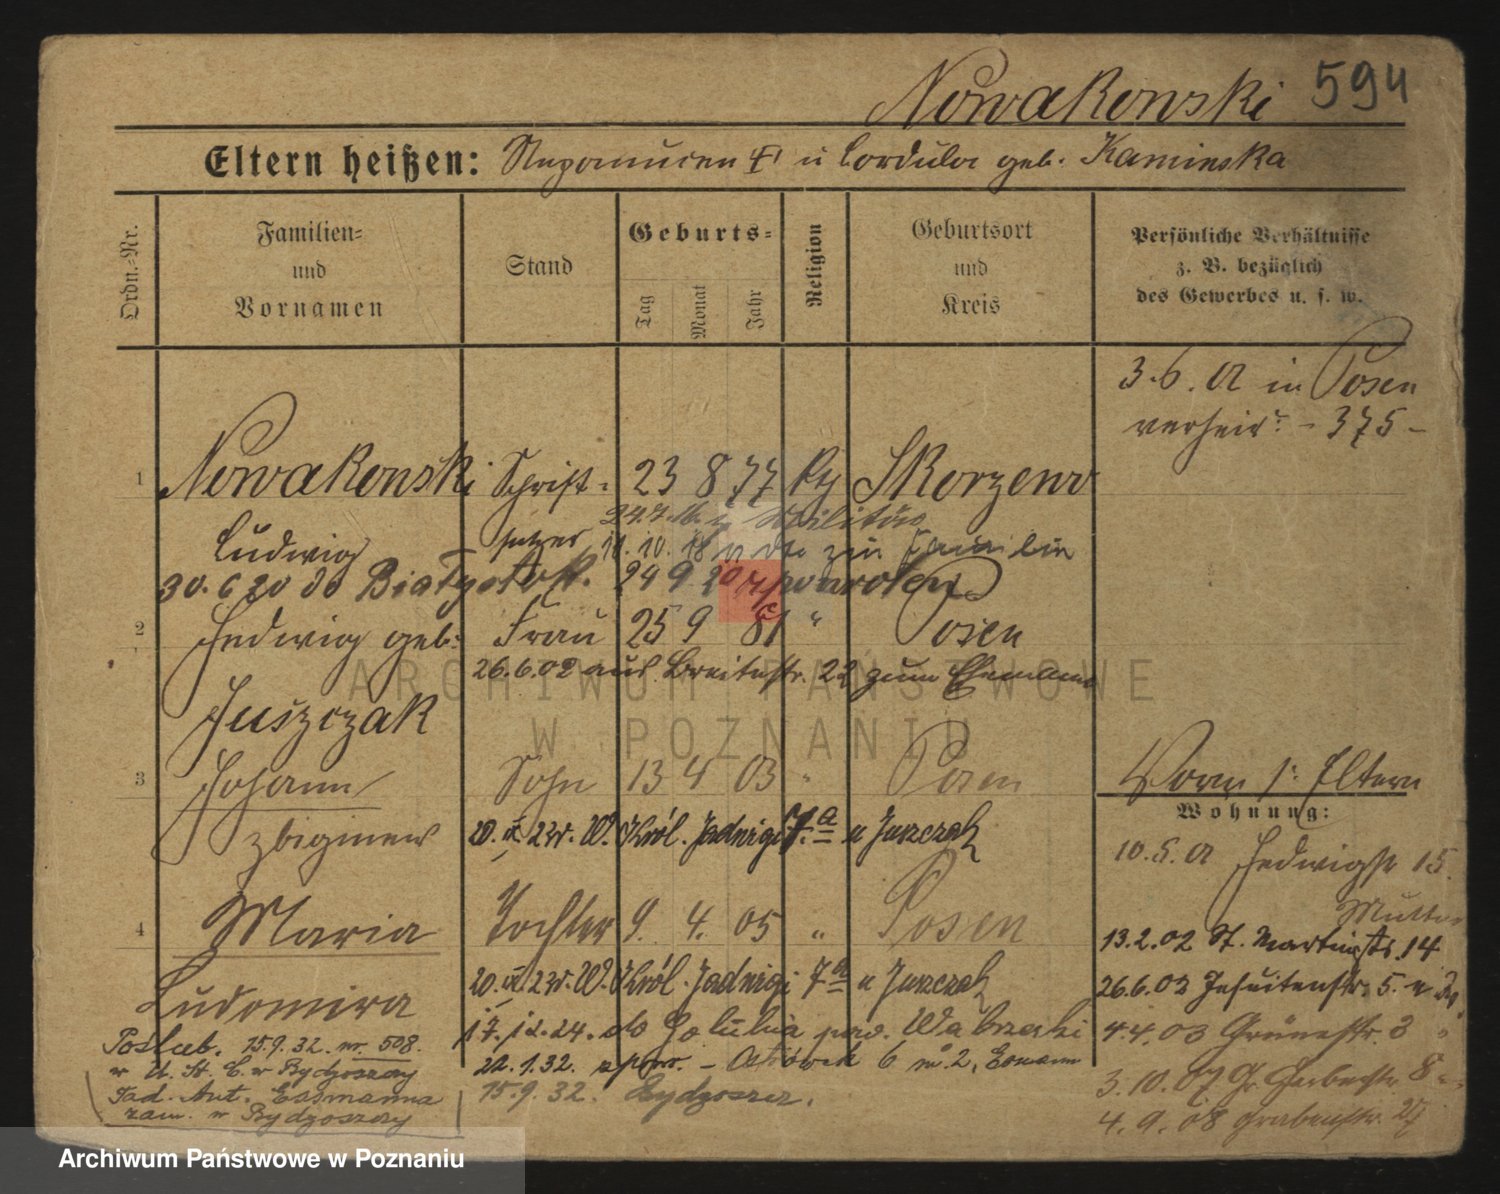 Nowakowski 594
Eltern heißen: Nepomucen u Cordula geb. Kaminska
Ordn.-Nr.
Familien-
und
Vornamen
Stand
Geburts-
Tag
Monat
Jahr
Religion
Geburtsort
und
Kreis
Persönliche Verhältnisse
z. B. bezüglich
des Gewerbes u. s. w.
3.6.02 in Posen
verheir. - 375 -
1 Nowakowski Schrift- 23 8 77 Skorzewo
24.7. Militär
Ludwig setzer 11.10.18 v dto zur Familie
30.6 20 do Białystok. 24 9. 20 z powrotem
2 Hedwig geb. Frau 25 9 81 " Posen
26.6.02 aus Breitestr. 22 zum Ehemann
Juszczak
ARCHIWUM PAŃSTWOWE
W POZNANIU
3 Johann Sohn 13 4 03 " Posen
Zbigniew 20. 23r. W. Król. Jadwigi 7a u Juszczak
4 Maria Tochter 9. 4. 05 " Posen
Ludomira 20. 23r. W. Król. Jadwigi 7a u Juszczak
17.12.24. do Golubia pow. Wąbrzeski
22.1.32. z pow. - 6 m. 2,
15.9.32. Bydgoszcz.
Poślub. 15.9.32. nr. 508.
w U. St. C. w Bydgoszczy
Tad. Ant. Essmanna
zam. w Bydgoszczy
Vorm s. Eltern
Wohnung:
10.5.02 Hedwigstr 15.
Mutter
13.2.02 St. Martinstr. 14
26.6.02 Jesuitenstr. 5.
4.4.03 Grünestr. 3
3.10.07 Gr. Gerberstr. 8
4.9.08 Grabenstr. 27
Archiwum Państwowe w Poznaniu